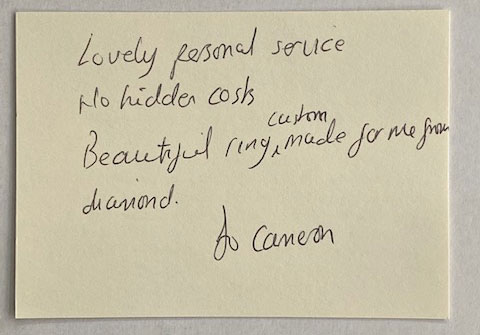 Lovely personal service
No hidden costs
Beautiful ring custom made for me from
diamond.
Jo Cameron